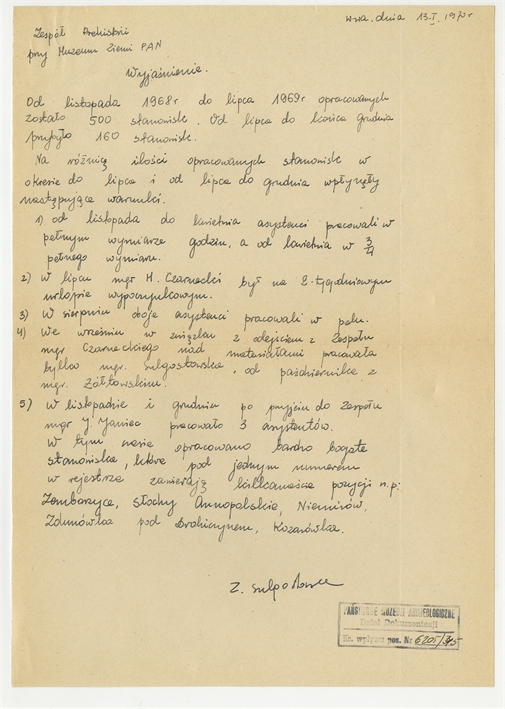 W-wa, dnia 13.I.1970r
Zespół Prehistorii
przy Muzeum Ziemi PAN
Wyjaśnienie.
Od listopada 1968r do lipca 1969r opracowanych
zostało 500 stanowisk. Od lipca do końca grudnia
przybyło 160 stanowisk.
Na różnicę ilości opracowanych stanowisk w
okresie do lipca i od lipca do grudnia wpłynęły
następujące warunki.
1) od listopada do kwietnia asystenci pracowali w
pełnym wymiarze godzin, a od kwietnia w 3/4
pełnego wymiaru.
2) W lipcu mgr H. Czarnecki był na 2-tygodniowym
urlopie wypoczynkowym.
3) W sierpniu oboje asystenci pracowali w polu.
4) We wrześniu w związku z odejściem z Zespołu
mgr Czarneckiego nad materiałami pracowała
tylko mgr. Sulgostowska, od października z
mgr. Żółtowskim.
5) W listopadzie i grudniu po przyjściu do Zespołu
mgr J. Janiec pracowało 3 asystentów.
W tym czasie opracowano bardzo bogate
stanowiska, które pod jednym numerem
w rejestrze zawierają kilkanaście pozycji n.p:
Zemborzyce, Słochy Annopolskie, Niemirów,
Zdunówka pod Drohiczynem, Kozarówka.
Z. Sulgostowska
PAŃSTWOWE MUZEUM ARCHEOLOGICZNE
Dział Dokumentacji
Nr. wpływu poz. Nr 6205/